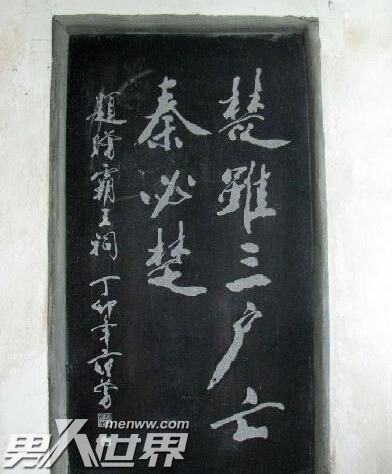 楚雖三户亡
秦必楚
題贈霸王祠 丁卯年
menww.com
男人世界